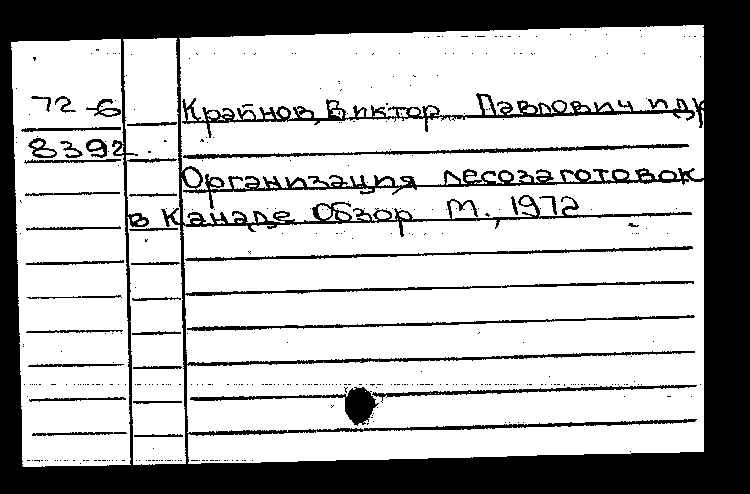 72-6 Крайнов, Виктор Павлович и др
8392
Организация лесозаготовок
в Канаде Обзор М., 1972